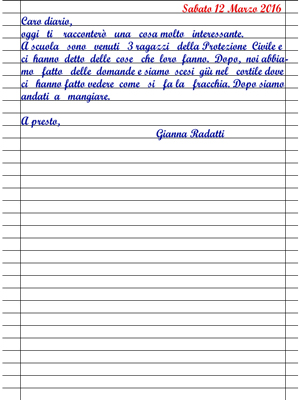 Sabato 12 Marzo 2016
Caro diario,
oggi ti racconterò una cosa molto interessante.
A scuola sono venuti 3 ragazzi della Protezione Civile e
ci hanno detto delle cose che loro fanno. Dopo, noi abbia-
mo fatto delle domande e siamo scesi giù nel cortile dove
ci hanno fatto vedere come si fa la fracchia. Dopo siamo
andati a mangiare.
A presto,
Gianna Radatti